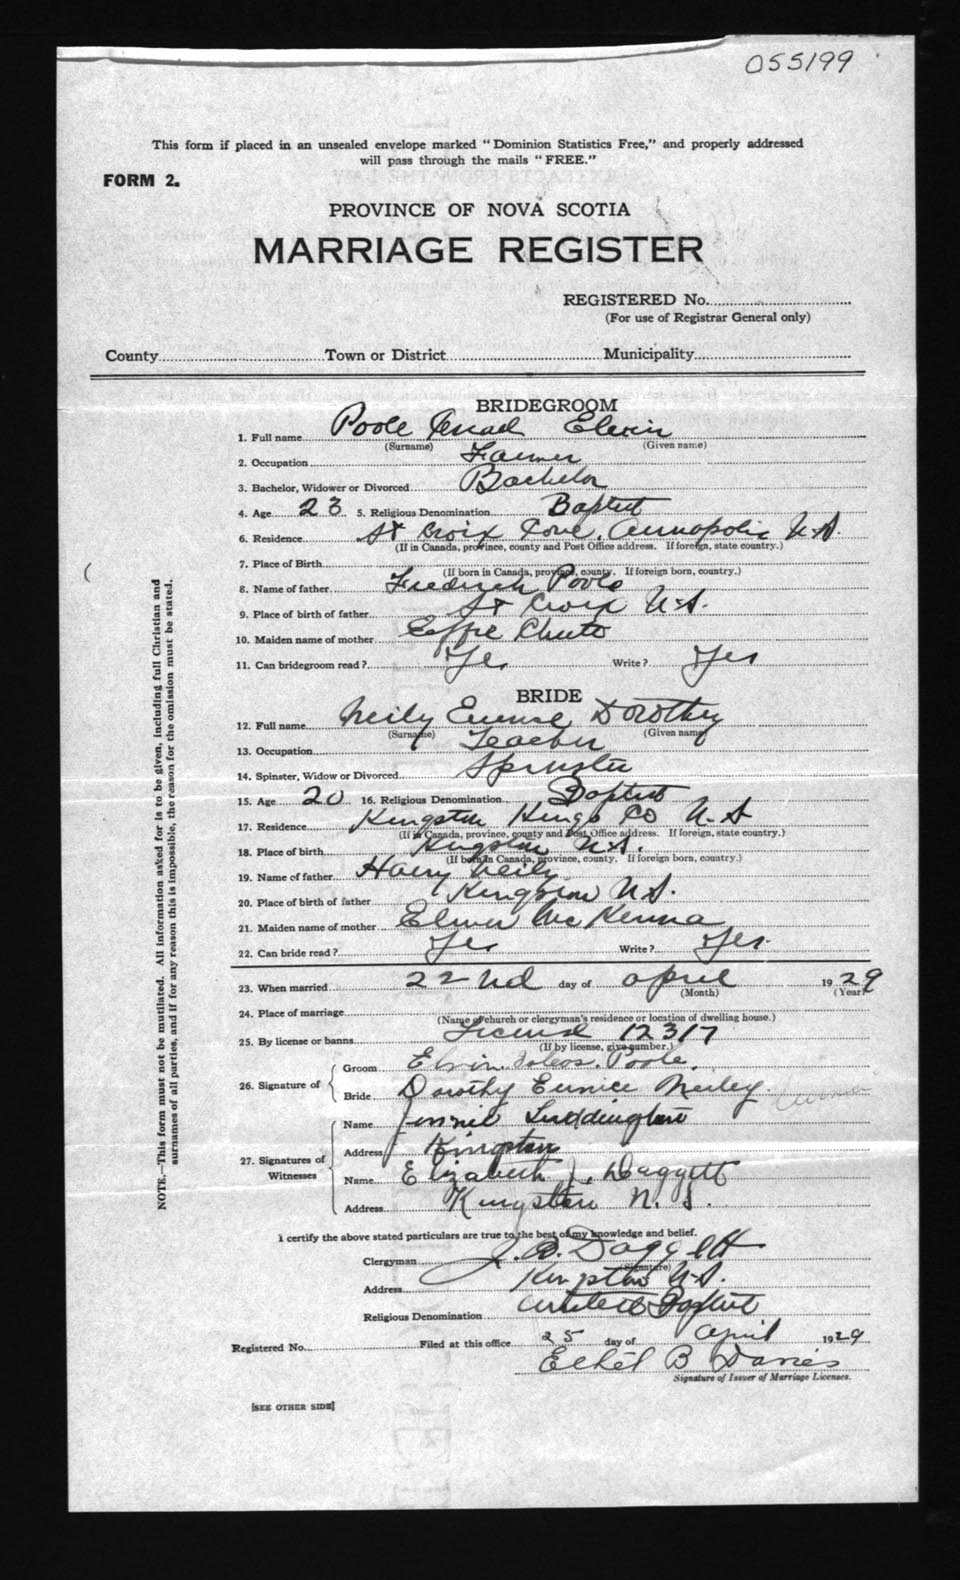 055199
This form if placed in an unsealed envelope marked "Dominion Statistics Free," and properly addressed
will pass through the mails "FREE."
FORM 2.
PROVINCE OF NOVA SCOTIA
MARRIAGE REGISTER
REGISTERED No.
(For use of Registrar General only)
County Town or District Municipality
BRIDEGROOM
1. Full name Poole Elvin
(Surname) (Given name)
2. Occupation Farmer
3. Bachelor, Widower or Divorced Bachelor
4. Age 23 5. Religious Denomination Baptist
6. Residence St Croix Cove, Annapolis N.S.
(If in Canada, province, county and Post Office address. If foreign, state country.)
7. Place of Birth
(If born in Canada, province, county. If foreign born, country.)
8. Name of father Frederick Poole
9. Place of birth of father St Croix N.S.
10. Maiden name of mother Effie Chute
11. Can bridegroom read? Yes Write? Yes
BRIDE
12. Full name Neily Eunice Dorothy
(Surname) (Given name)
13. Occupation Teacher
14. Spinster, Widow or Divorced Spinster
15. Age 20 16. Religious Denomination Baptist
17. Residence Kingston Kings Co N.S
(If in Canada, province, county and Post Office address. If foreign, state country.)
18. Place of birth Kingston N.S.
(If born in Canada, province, county. If foreign born, country.)
19. Name of father Harry Neily
20. Place of birth of father Kingston N.S.
21. Maiden name of mother McKenna
22. Can bride read? Yes Write? Yes.
23. When married 22nd day of April 1929
(Month) (Year)
24. Place of marriage
(Name of church or clergyman's residence or location of dwelling house.)
25. By license or banns License 12317
(If by license, give number.)
26. Signature of Groom Elvin Poole.
Bride Dorothy Eunice Neiley.
27. Signatures of Witnesses Name Jennie Luddington
Address Kingston
Name Elizabeth J. Daggett
Address Kingston N.S.
I certify the above stated particulars are true to the best of my knowledge and belief.
Clergyman J. B. Daggett
(Signature)
Address Kingston N.S.
Religious Denomination United Baptist
Registered No. Filed at this office 25 day of April 1929
Ethel B Davies
Signature of Issuer of Marriage Licenses.
[SEE OTHER SIDE]
NOTE.—This form must not be mutilated. All information asked for is to be given, including full Christian and
surnames of all parties, and if for any reason this is impossible, the reason for the omission must be stated.